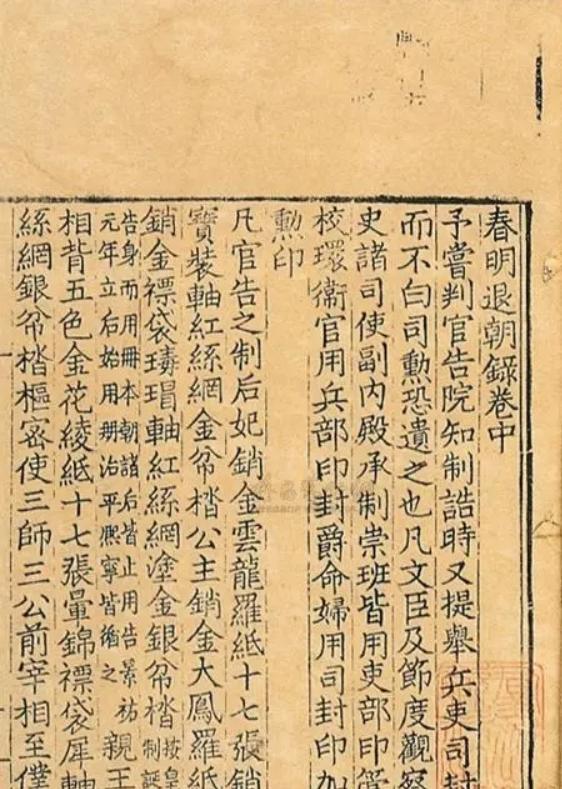 春明退朝錄卷中
予嘗判官告院知制誥時又提舉兵吏司封
而不曰司勲恐遺之也凡文臣及節度觀察
史諸司使副内殿承制崇班皆用吏部印管
校環衛官用兵部印封爵命婦用司封印加
勲印
凡官告之制后妃銷金雲龍羅紙十七張銷
寶裝軸紅絲網金帉㭼公主銷金大鳳羅紙
銷金褾袋瑇瑁軸紅絲網塗金銀帉㭼
按皇
制誥
告身而用冊本朝諸后皆止用告景祐
元年立后始用冊治平熙寧皆循之
親王
相背五色金花綾紙十七張暈錦褾袋犀軸
絲網銀帉㭼樞密使三師三公前宰相至僕